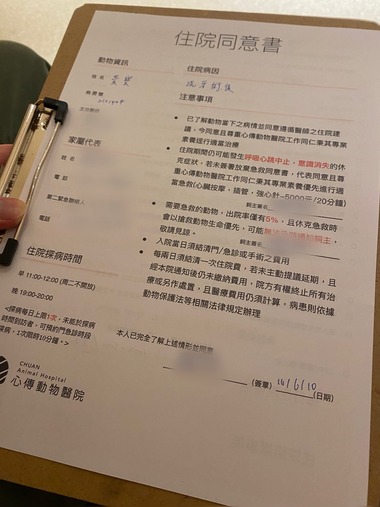 住院同意書
動物資訊
姓名
病歷號
家屬代表
姓名
電話
第二緊急聯絡人
電話
住院探病時間
早 11:00-12:00 (周二不開放)
晚 19:00-20:00
<探病每日上限1次，未能於探病
時間到訪者，可預約門急診時段
探病，1次限時10分鐘。>
CHUAN
Animal Hospital
心傳動物醫院
住院病因
注意事項
已了解動物當下之病情並同意遵循醫師之住院建
議，今同意且尊重心傳動物醫院工作同仁秉其專業
素養逕行適當治療
住院期間仍可能發生呼吸心跳中止，意識消失的休
克症狀，若未簽署放棄急救同意書，代表同意且尊
重心傳動物醫院工作同仁秉其專業素養優先進行適
當急救(心臟按摩，插管，強心針~5000元/20分鐘)
飼主簽名
需要急救的動物，出院率僅有5%，且休克急救時
會以搶救動物生命優先，可能無法及時通知飼主，
敬請見諒。
飼主簽名
入院當日結清門/急診或手術之費用
每兩日須結清一次住院費，若未主動提議延期，且
經本院通知後仍未繳納費用，院方有權終止所有治
療或另作處置，且醫療費用仍須計算，病患則依據
動物保護法等相關法律規定辦理
本人已完全了解上述情形並同意
(簽章) 114/6/10 (日期)